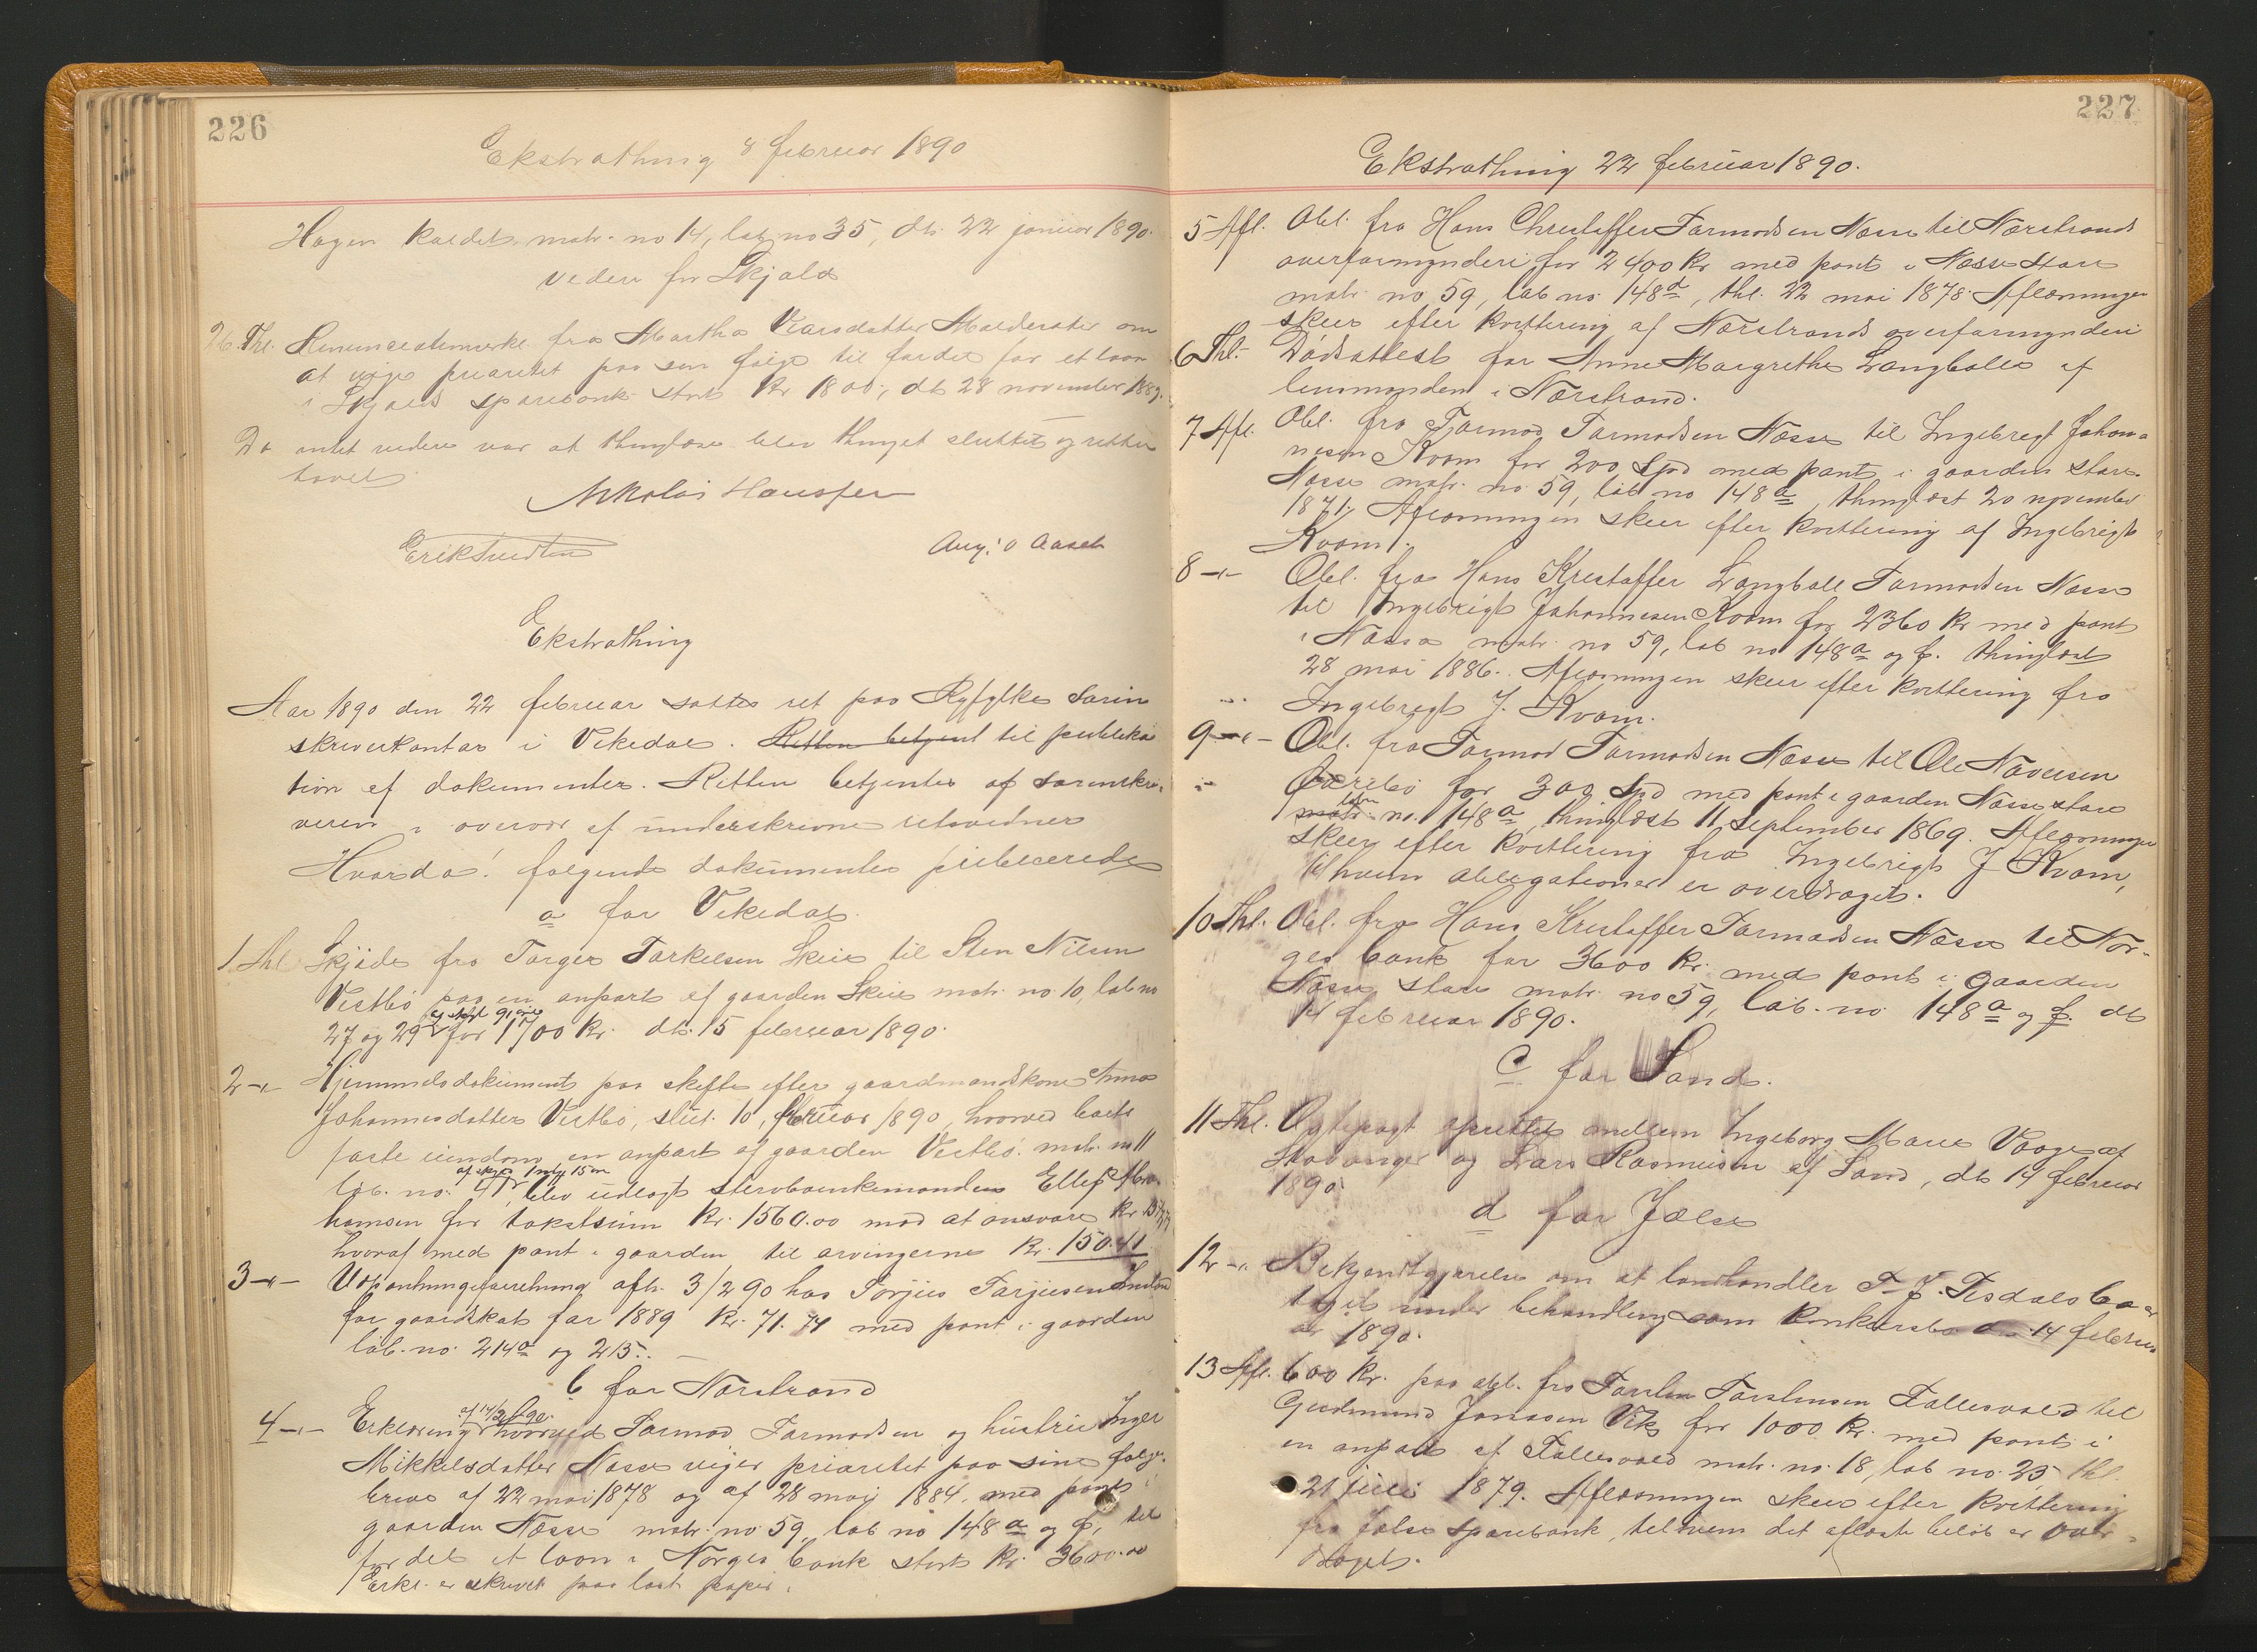 226
Ekstrathing 8 februar 1890
Hagen kaldet matr. no 14, lab no 35, dt. 22 januar 1890.
videre for Skjold
26. Thl. Renunceatemerke fra Martha Viarsdatter om
at vige prioritet paa sin følge til fordel for et laan
i Skjolds sparebank stort Kr 1800, dt 28 november 1889.
Da intet videre var at thinglæse blev thinget sluttet og retten
hævet
Nikolai Hausken
Aug. O Aasen
Ekstrathing
Aar 1890 den 22 februar sattes ret paa Ryfylke Soren
skriverkontor i Vikedal. Retten betjent til publika
tion af dokumenter. Retten betjentes af sorenskri,
veren i overvær af underskrevne retsvidner
Hvorda! følgende dokumenter publicerede
a for Vikedal.
1. Thl Skjøde fra Torger Torkelsen Skeie til Sten Nilsen
Vestbø paa en anpart af gaarden Skeie matr. no 10, lab no
27 og 29 for 1700 Kr. dt. 15 februar 1890.
2 -"- Hjemmelsdokument paa skifte efter gaardmandskone Anna
Johannesdatter Vestbø, slut. 10, februar 1890, hvorved boets
faste eiendom en anpart af gaarden Vestbø. matr. no 11
af skyld 1 mk 15 øre
lab. no. 41, blev udlagt stervboenkemanden Ellef Abra
hamsen for takstsum Kr. 1560.00 mod at ansvare Kr.
hvoraf med pant i gaarden til arvingerne Kr. 150.41
3 -"- Udpantningsforretning afh. 3/2 90 hos Torjus Torjusen
for gaardskat for 1889 Kr. 71.74 med pant i gaarden
lab. no. 214a og 215.
b for Nærstrand
af 14/2 90.
4 -"- Erklæring hvorved Tormod Tormodsen og hustrue Inger
Mikkelsdatter Næsse viger prioritet paa sine følge-
breve af 22 mai 1878 og af 28 maj 1884. med pant i
gaarden Næsse matr. no 59, lab no 148a og f, til
fordel et laan i Norges bank stort Kr. 3600.00
Erkl. er skrevet paa løst papir.
227
Ekstrathing 22 februar 1890.
5 Afl. Obl. fra Hans Christoffer Tormodsen Næsse til Nærstrands
overformynderi for 2400 Kr med pant i Næsse store
matr. no 59, lab no. 148a, thl. 22 mai 1878. Aflæsningen
skeer efter kvittering af Nærstrands overformynderi
6 Thl. Dødsattest for Anne Margrethe Langballe af
lensmanden i Nærstrand.
7 Afl. Obl. fra Tormod Tormodsen Næsse til Ingebregt Johan-
nesen Kvam for 200 Spd med pant i gaarden store
Næsse matr. no 59, lab no 148a, thinglæst 20 november
1871. Aflæsningen skeer efter kvittering af Ingebrigt
Kvam.
8 -"- Obl. fra Hans Kristoffer Langball Tormodsen Næsse
til Ingebrigt Johannesen Kvam for 2360 Kr med pant
i Næsse matr. no 59, lab no 148a og f. thinglæst
28 mai 1886. Aflæsningen skeer efter kvittering fra
Ingebregt J. Kvam.
9 -"- Obl. fra Tormod Tormodsen Næsse til Ole Naversen
for 300 Spd med pant i gaarden Næsse store
løbe
matr. no. 148a, thinglæst 11 september 1869. Aflæsningen
skeer efter kvittering fra Ingebrigt J Kvam,
til hvem obligationen er overdraget.
10 Thl. Obl. fra Hans Kristoffer Tormodsen Næsse til Nor-
ges bank for 3600 Kr. med pant i gaarden
Næsse store matr. no 59, lab. no 148a og f. dt
14 februar 1890.
c for Sand.
11 Thl. Ægtepagt oprettet mellem Ingeborg Marie Vaage af
Stavanger og Lars Rasmusen af Sand, dt 14 februar
1890.
d for Jælse
12 -"- Bekjendtgjørelse om at landhandler T. J. Tisdals bo er
taget under behandling som konkursbo den 14 febru
ar 1890.
13 Afl. 600 Kr. paa obl. fra Torsten Torstensen Fattesvold til
Gudmund Jonasen Vik for 1000 Kr. med pant i
en anpart af Fattesvold matr. no. 18, lab no. 25 thl.
21 juli 1879. Aflæsningen skeer efter kvittering
fra Jælse sparebank, til hvem det aflæste beløb er over-
draget.